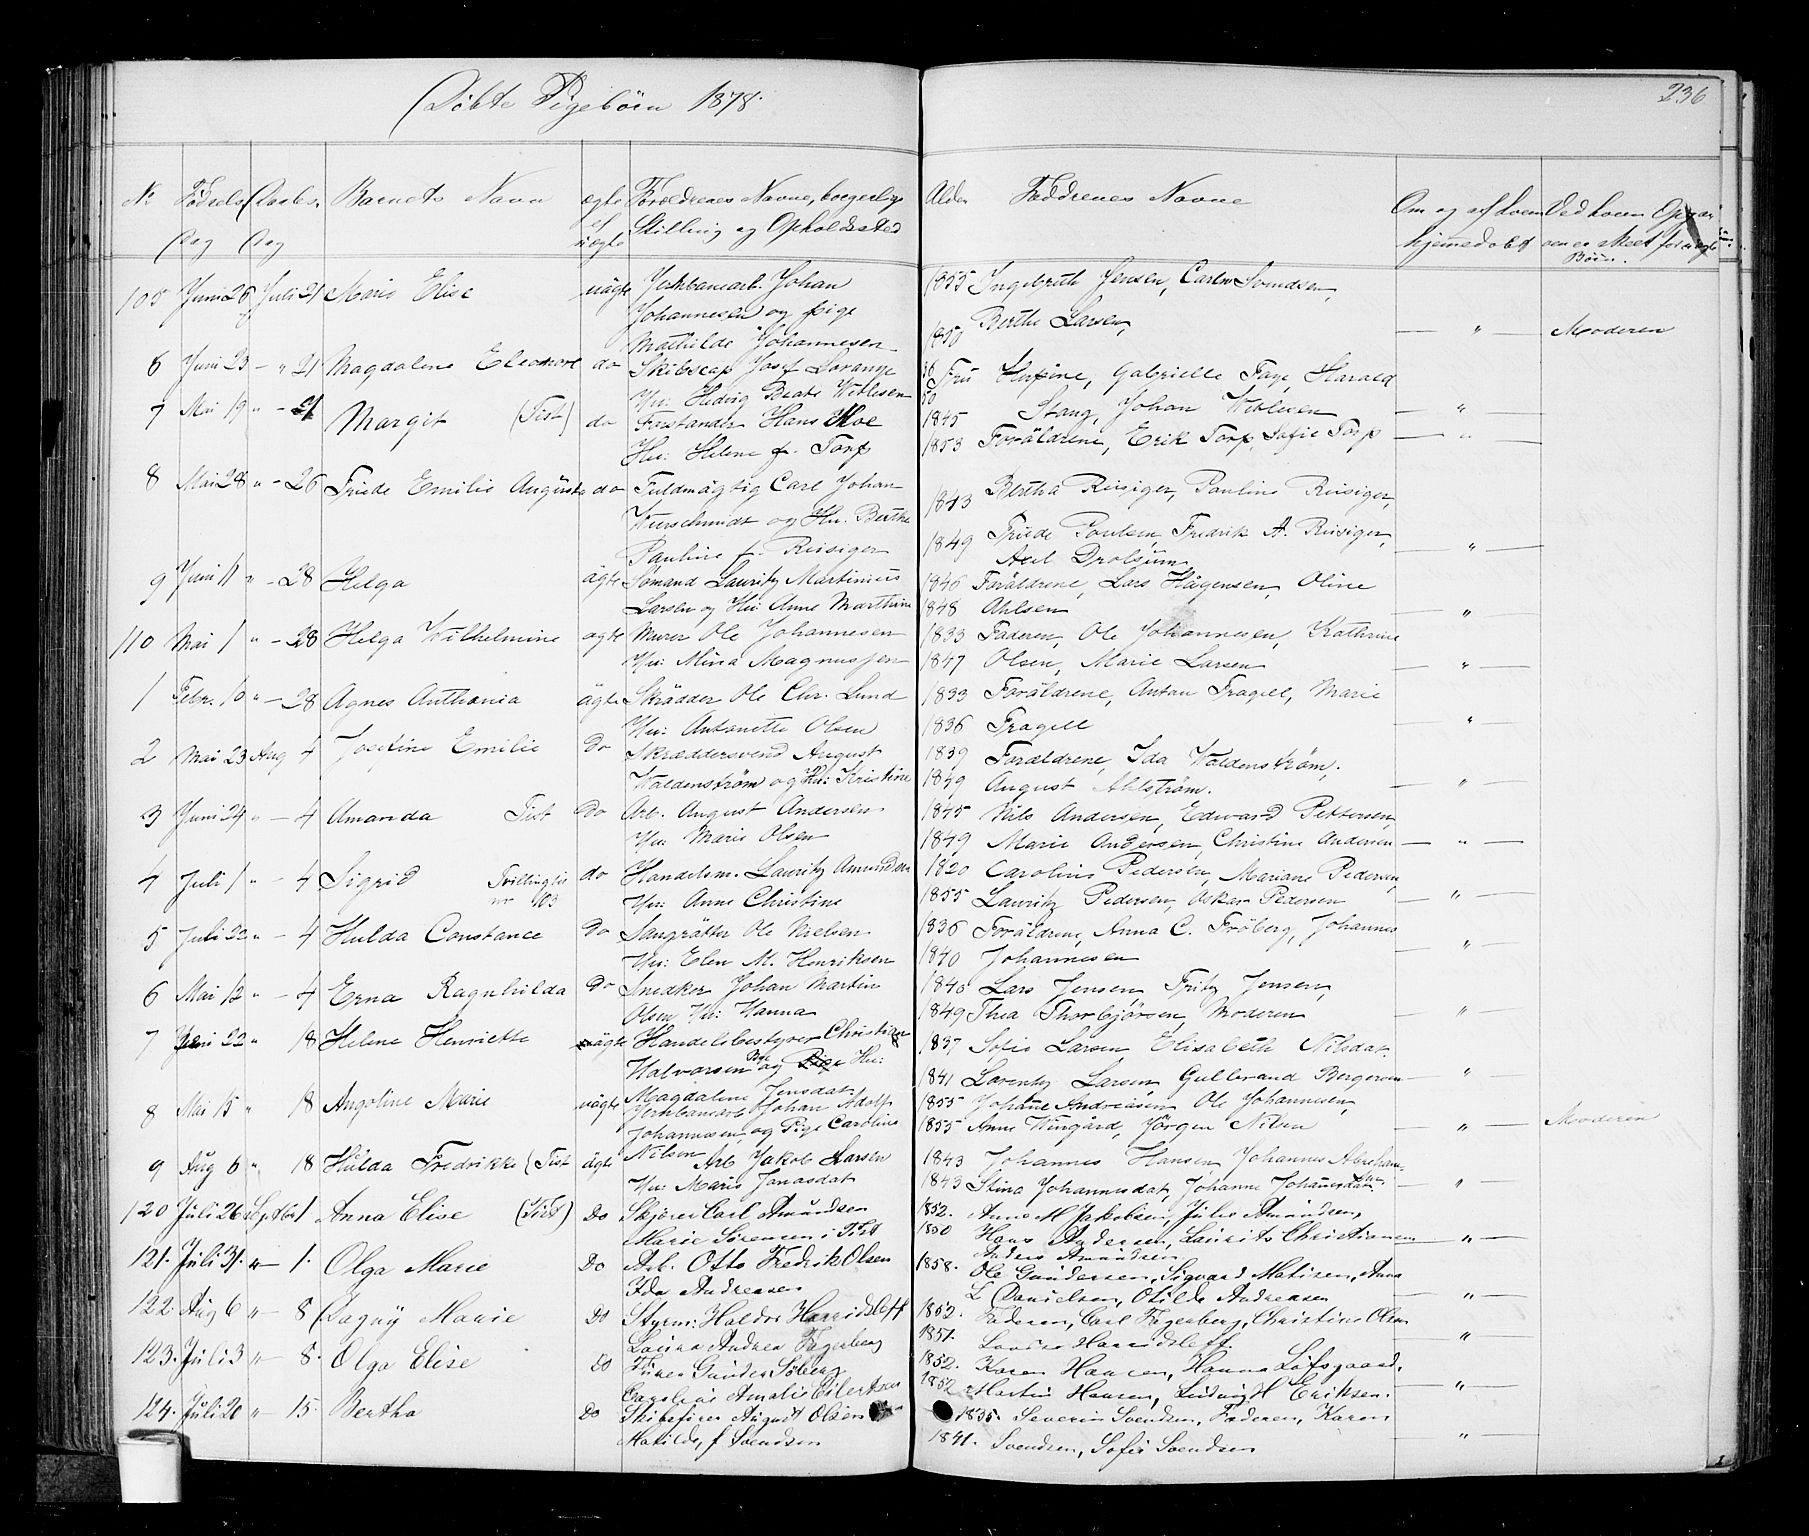 Døbte Pigebörn 1878.
236
No Födsels Dag Daabs. Dag Barnets Navn ægte el. uægte Forældrenes Navne, borgerlige Stilling og Opholdssted Alder Faddrenes Navne Om og af hvem hjemmedøbt Ved hvem Opgaven er skeet for uægte Börn.
105 Juni 26 Juli 21 Marie Elise uägte Jernbanearb. Johan 1855 Ingebreth Jensen, Carl Svendsen,
Johannesen og pige Berthe Larsen,
Mathilde Johannesen 1850 — " — Moderen
6 Juni 23 - " 21 Magdalene Eleonore do Skibscap Josef Lorange 36 Fru Gabrielle Faye, Harald
Hu: Hedvig Beate Willesen 50 Stang, Johan Willesen — "
7 Mai 19 " - 21 Margit (Tist) do Forstander Hans Moe 1845
Hu: Helene f. Torp 1853 Foräldrene, Erik Torp, Sofie Torp — " —
8 Mai 28 " - 26 Friede Emilie Augusta do Fuldmägtig Carl Johan 1843 Bertha Reisiger, Pauline Reisiger,
og Hu. Berthe 1849 Friede Poulsen, Fredrik A. Reisiger,
Pauline f. Reisiger Axel Drolsum — " —
9 Juni 11 " - 28 Helga ägte Sömand Lauritz Martinius 1846 Foräldrene, Lars Hågensen, Oline
Larsen og Hu: Anne Marthine 1848 Ahlsen — " —
110 Mai 1 " - 28 Helga Wilhelmine ägte Murer Ole Johannesen 1833 Faderen, Ole Johannesen, Kathrine
Hu: Mina Magnussen 1847 Olsen, Marie Larsen — " —
1 Febr. 10 " - 28 Agnes Anthonia ägte Skrädder Ole Chr. Lund 1833 Foräldrene, Anton Fragell, Marie
Hu: Antonette Olsen 1836 Fragell "
2 Mai 23 Aug 4 Josefine Emilie Do Skræddersvend August 1839 Forældrene, Ida Waldenstrøm,
Waldenstrøm og Hu: Kristine 1849 August Ahlstrøm. — " —
3 Juni 24 " - 4 Amanda Tist Do Arb. August Andersen 1845 Nils Andersen, Edward Pettersen,
Hu: Marie Olsen 1849 Marie Andersen, Christine Andersen — " —
4 Juli 1 " - 4 Sigrid Tvilling til nr 103 do Handelsm. Lauritz Amundsen 1820 Caroline Pedersen, Mariane Pedersen,
Hu: Anne Christine 1855 Lauritz Pedersen, Oskar Pedersen — " —
5 Juli 22 " - 4 Hulda Constance Do Ole Nielsen 1836 Foräldrene, Anna C. Fröberg, Johannes
Hu: Elen M. Henriksen 1840 Johannesen — " —
6 Mai 12 " - 4 Erna Ragnhilda Do Snedker Johan Martin 1840 Lars Jensen, Fritz Jensen,
Olsen Hu: Hanna 1849 Thea Thorbjörsen, Moderen — " —
7 Juni 22 " 18 Helene Henriette ägte Handelsbestyrer Christian 1837 Sofie Larsen, Elisabeth Nilsdat.
Halvorsen og Hu: 1841 Lorentz Larsen, Gulbrand Bergersen — " —
Magdalene Jensdat
8 Mai 15 " 18 Angoline Marie uägte Jernbanearb Johan Adolf 1855 Johane Andreasen, Ole Johannesen,
Johannesen og Pige Caroline 1855 Anne Wingård, Jörgen Nilsen — " — Moderen
Nilsen
9 Aug 6 " 18 Hulda Fredrikke (Tist ägte Arb Jakob Larsen 1843 Johannes Hansen, Johannes Abraham-
Hu: Marie Jonasdat 1843 Stina Johannesdat, Johanne Johannesdat — " —
120 Juli 26 Septbr 1 Anna Elise (Tist) Do Carl Amundsen 1852. Anne M Jakobsen, Julie Amundsen,
Marie Sørensen i Tist 1850 Hans Andersen, Laurits Christiansen — " —
Anders Amundsen
121. Juli 31. " 1. Olga Marie Do Arb. Otto Fredrik Olsen 1858. Ole Gundersen, Sigvard Matisen, Anna
Ida Andreasen L Danielsen, Otilde Andreasen — " —
122. Aug 6 " 8 Dagny Marie Do Styrm: Haldor Harridsleff 1852. Faderen, Carl Fagerberg, Christine Olsen
Laura Andrea Fagerberg 1851. Harridsleff. "
123. Juli 3 " 8. Olga Elise Do Gunder Soberg 1852. Karen Hansen, Hanna Löfsgaard,
Caroline Amalie Eilertsen 1852 Martin Hansen, Ludvig H Eriksen. — " —
124. Juli 20 " 15. Bertha Do Skibsfører August Olsen 1835. Severin Svendsen, Faderen, Karen
Matilde f Svendsen 1841. Svendsen, Sofie Svendsen — " —